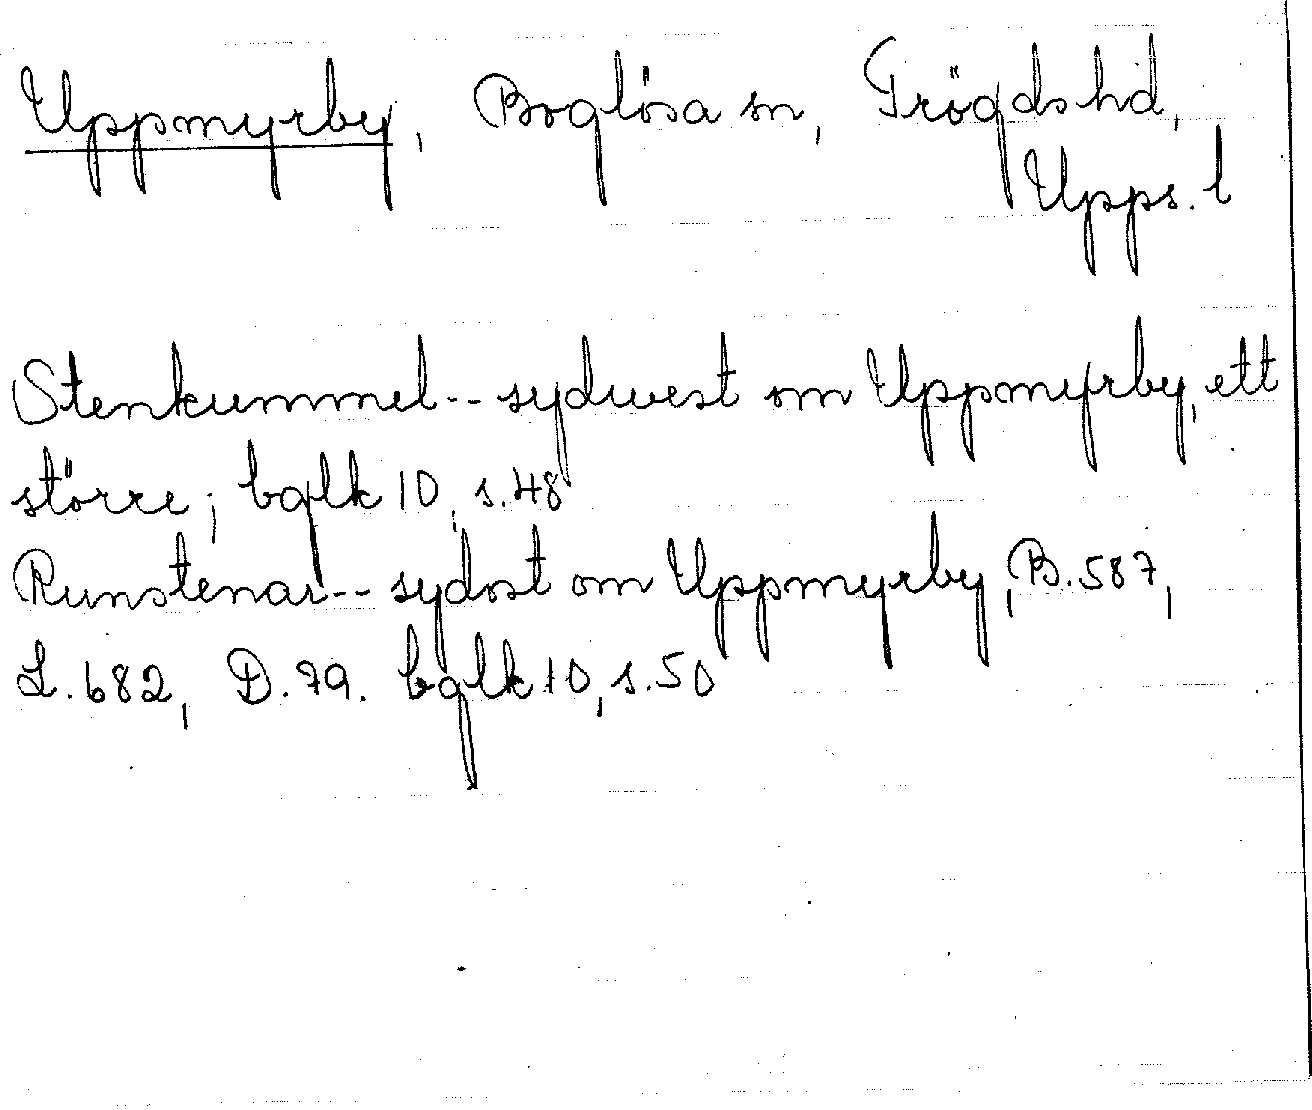 Uppmyrby, Boglösa sn, Trögds hd,
Upps. l
Stenkummel -- sydwest om Uppmyrby, ett
större; bglk 10, s. 48
Runstenar -- sydost om Uppmyrby, B. 587,
L. 682, D. 79. bglk 10, s. 50